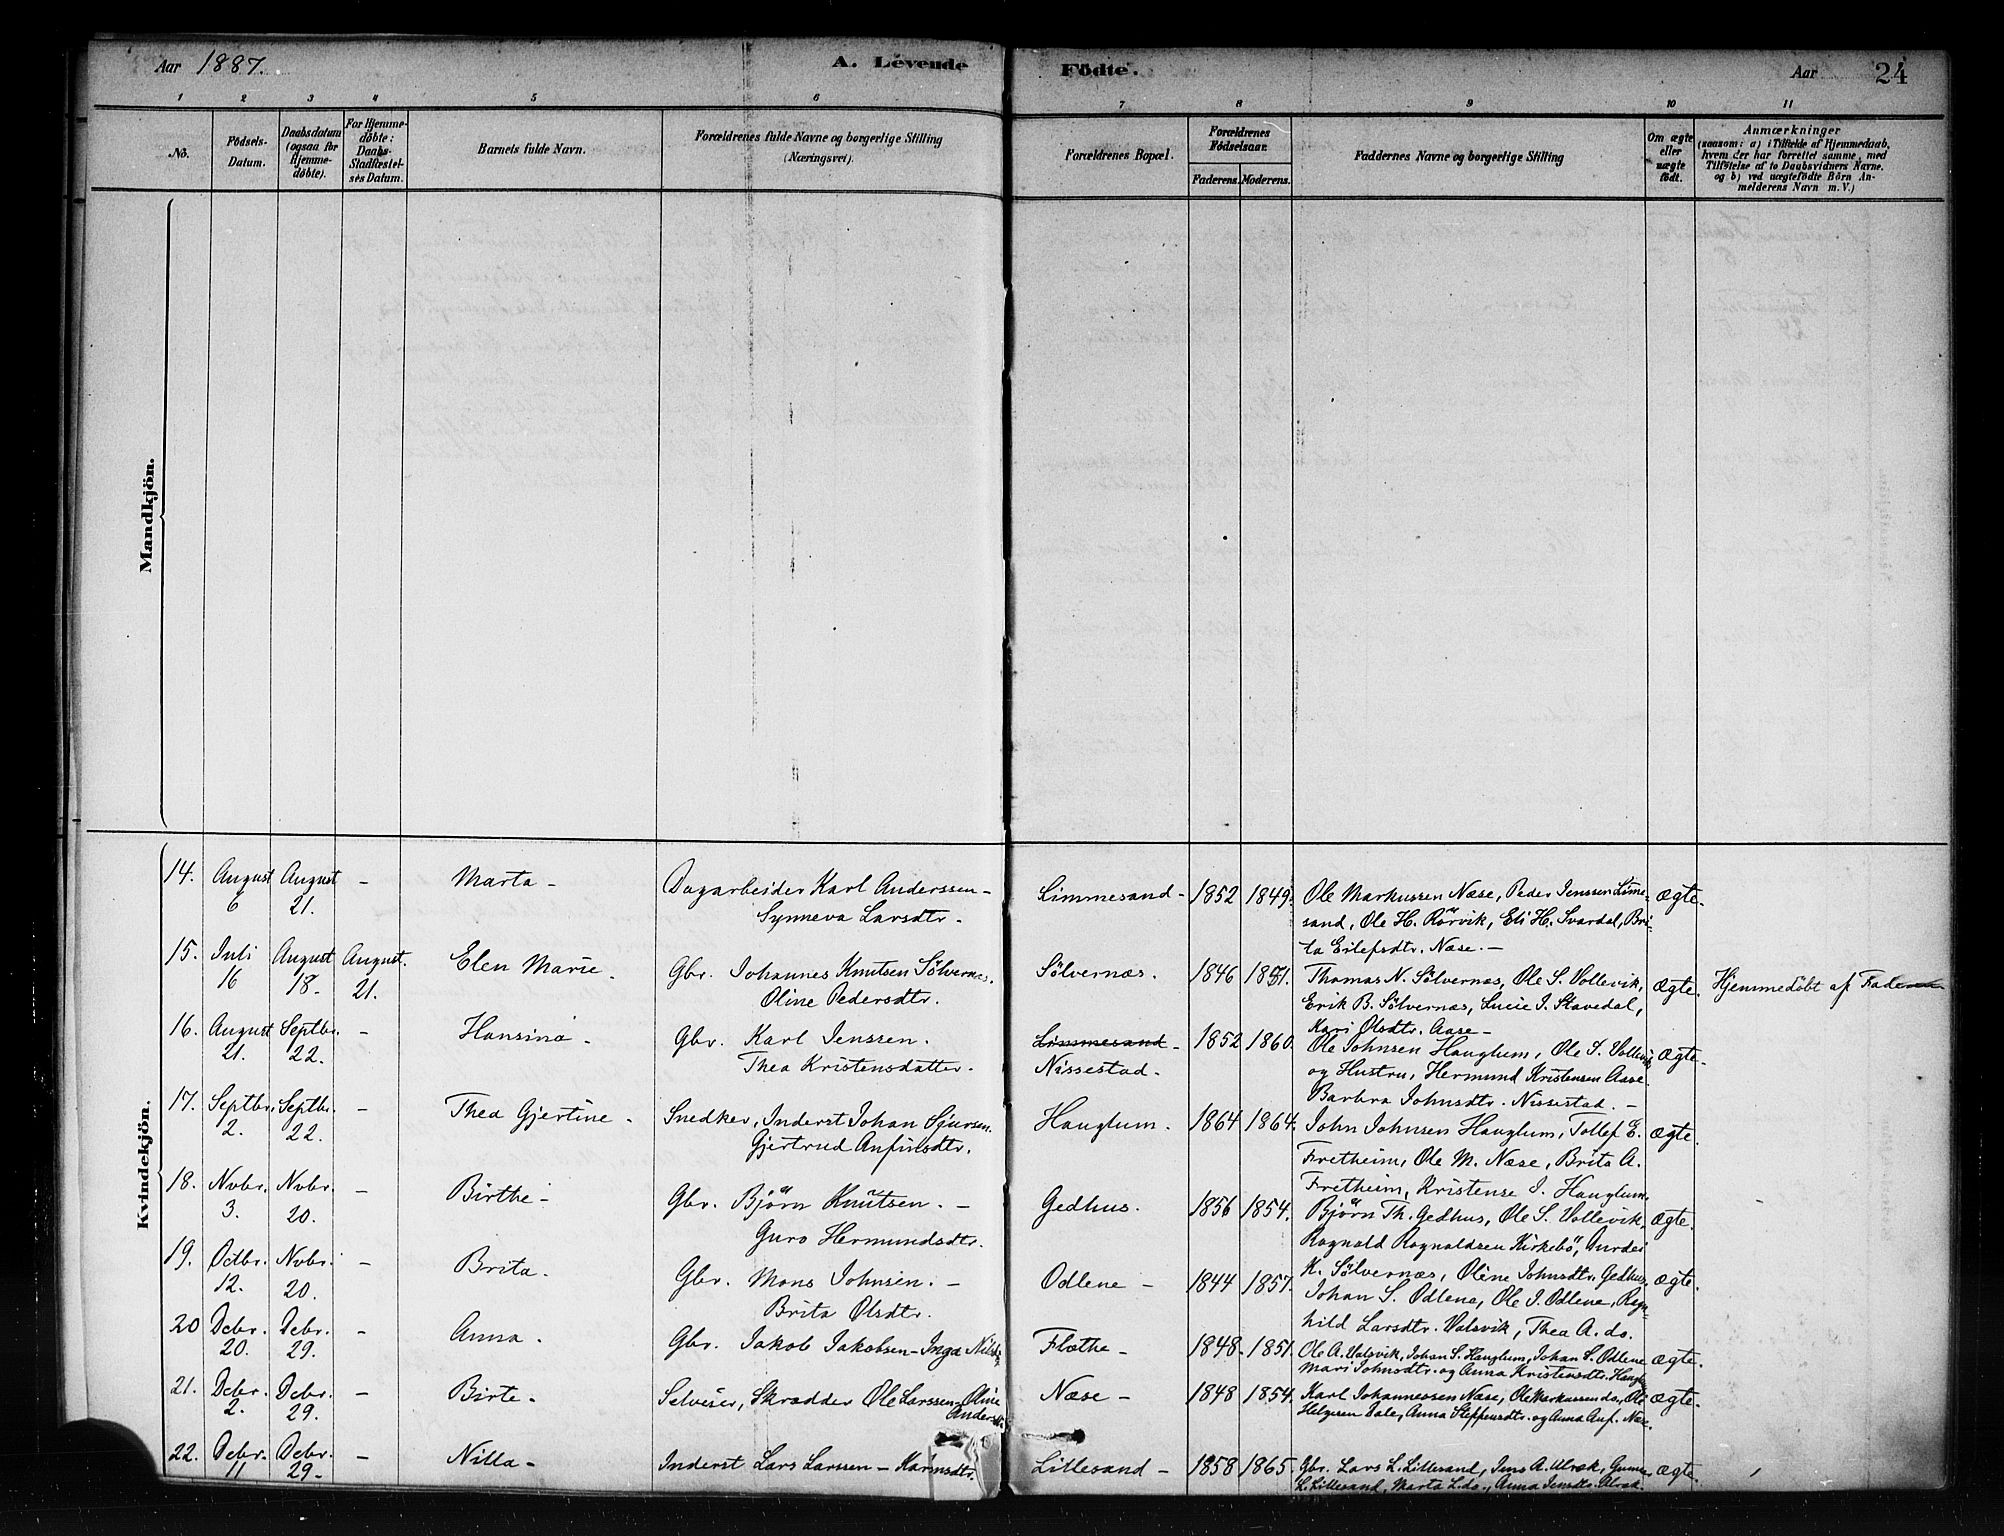 Aar 1887.
A. Levende Födte.
Aar 24
1 2 3 4 5 6 7 8 9 10 11
No.
Födsels-Datum.
Daabsdatum (ogsaa for Hjemme-döbte).
For Hjemme-döbte: Daabs-Stadfæstel-ses Datum.
Barnets fulde Navn.
Forældrenes fulde Navne og borgerlige Stilling (Næringsvei).
Forældrenes Bopæl.
Forældrenes Födselsaar.
Faderens. Moderens.
Faddernes Navne og borgerlige Stilling
Om ægte eller uægte födt.
Anmærkninger
(saasom: a) i Tilfælde af Hjemmedaab,
hvem der har forrettet samme, med
Tilföielse af to Daabsvidners Navne.
og b) ved uægtefödte Börn An-
melderens Navn m. V.)
Mandkjön.
Kvindekjön.
14. August 6 August 21. - Marta - Dagarbeider Karl Anderssen - Synneva Larsdtr. - Limmesand - 1852 1849. Ole Markussen Næse, Peder Jenssen Limesand, Ole H. Rörvik, Eli H. Svardal, Brita Eilefsdtr. Næse. - ægte.
15. Juli 16 August 18. August. 21. Elen Marie. Gbr. Johannes Knutsen Sölvernæs. Oline Pedersdtr. Sölvernæs. 1846 1851. Thomas N. Sölvernæs, Ole S. Vollevik, Erik B. Sölvernæs, Lucie I. Stavedal, Kari Olsdtr. Aase - ægte. Hjemmedöbt af Faderen
16. August 21. Septbr. 22. - Hansina - Gbr. Karl Jenssen. Thea Kristensdatter. Limmesand - Nissestad. 1852 1860. Ole Johnsen Hauglum, Ole S. Vollevik og Hustru, Hermund Kristensen Aase Barbra Johnsdtr. Nissestad. - ægte.
17. Septbr. 2. Septbr. 22. - Thea Gjertine - Snedker, Inderst Johan Sjursen. Gjertrud Anfinsdtr. Hauglum. 1864 1864. John Johnsen Hauglum, Tollef E. Fretheim, Ole M. Næse, Brita A. Fretheim, Kristense J. Hauglum. ægte.
18. Nvbr. 3. Nvbr. 20. - Birthe - Gbr. Björn Knutsen. - Guro Hermundsdtr. Gedhus. 1856 1854. Björn Th. Gedhus, Ole S. Vollevik, Ragnald Ragnaldsen Kirkebö, Gurdei K. Sölvernæs, Oline Johnsdtr. Gedhus. ægte.
19. Octbr. 12. Nvbr. 20. - Brita. Gbr. Mons Johnsen. - Brita Olsdtr. Odlene - 1844 1857. Johan S. Odlene, Ole J. Odlene, Ragnhild Larsdtr. Valsvik, Thea A. do. ægte.
20 Debr. 20. Debr. 29. - Anna. Gbr. Jakob Jakobsen - Inga Nilsdtr. Flöthe - 1848. 1851. Ole A. Valsvik, Johan S. Hauglum, Johan S. Odlene Mari Johnsdtr. og Anna Kristensdtr. ægte.
21. Debr. 2. Debr. 29. - Birte - Selveier, Skrædder Ole Larssen - Oline Andersdtr. Næse - 1848 1854. Karl Johannessen Næse, Ole Markussen do, Ole Helgesen Dale, Anna Steffensdtr. og Anna Anf. Næse. ægte.
22. Debr. 11 Debr. 29 - Nilla - Inderst Lars Larssen - Karensdtr. Lillesand - 1858 1865. Gbr. Lars L. Lillesand, Jens A. Ulræk, L. Lillesand, Marta L. do., Anna Jensdtr. Ulræk. ægte.